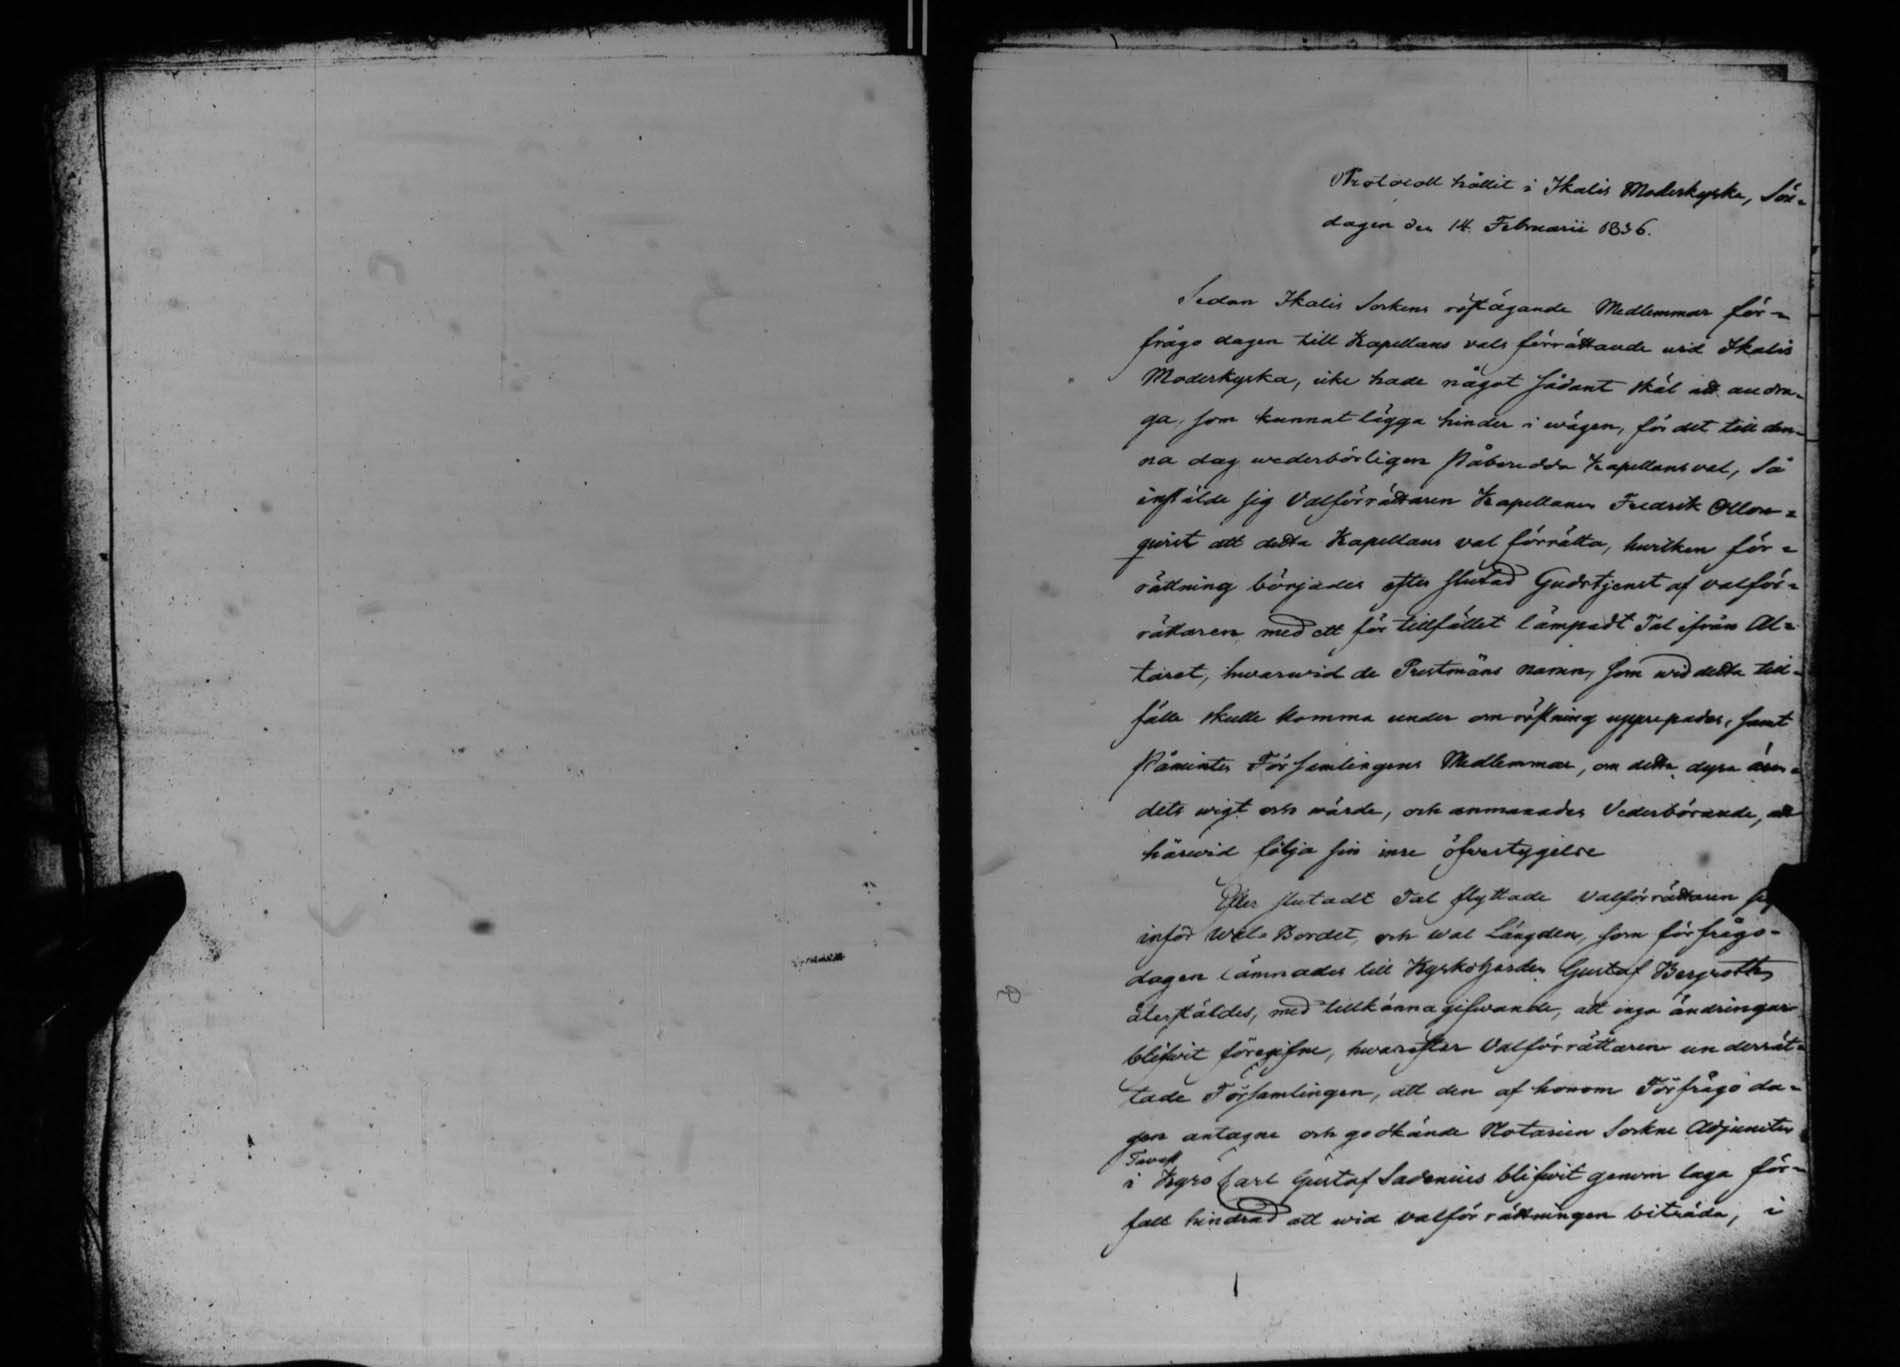 Protocoll hållit i Ikalis Moderkyrka, Sön-
dagen den 14. Februarii 1836.
Sedan Ikalis Sockens röstägande Medlemmar för-
frågo dagen till Kapellans vals förrättande wid Ikalis
Moderkyrka, icke hade något sådant skäl att andra-
ga, som kunnat lägga hinder i wägen, för det till den-
na dag wederbörligen påberedda Kapellansval, Så
instälde sig Valförrättaren Kapellanen Fredrik Ollon-
qvist att detta Kapellans val förrätta, hwilken för-
rättning börjades efter slutad Gudstjenst af valför-
rättaren med ett för tillfället lämpadt Tal ifrån Al-
taret, hwarwid de Prestmäns namn, som wid detta till-
fälle skulle komma under omröstning upprepades, samt
påmintes Församlingens Medlemmar, om detta dyra ären-
dets wigt och wärde, och anmanades Vederbörande, att
härwid följa sin inre öfvertygelse
Efter slutadt Tal flyttade Valförrättaren sig
inför Wal-Bordet, och Wal Längden, som förfrågo-
dagen lämnades till Kyrkoherden Gustaf Bergroth,
återstäldes, med tillkännagifwande, att inga ändringar
blifwit föregifne, hwarefter Valförrättaren underrät-
tade Församlingen, att den af honom Förfrågo da-
gen antagne och godkände Notarien Sockne Adjuncten
Tavast
i Kyrö Carl Gustaf Sadenius blifwit genom laga för-
fall hindrad att wid valförrättningen biträda, i